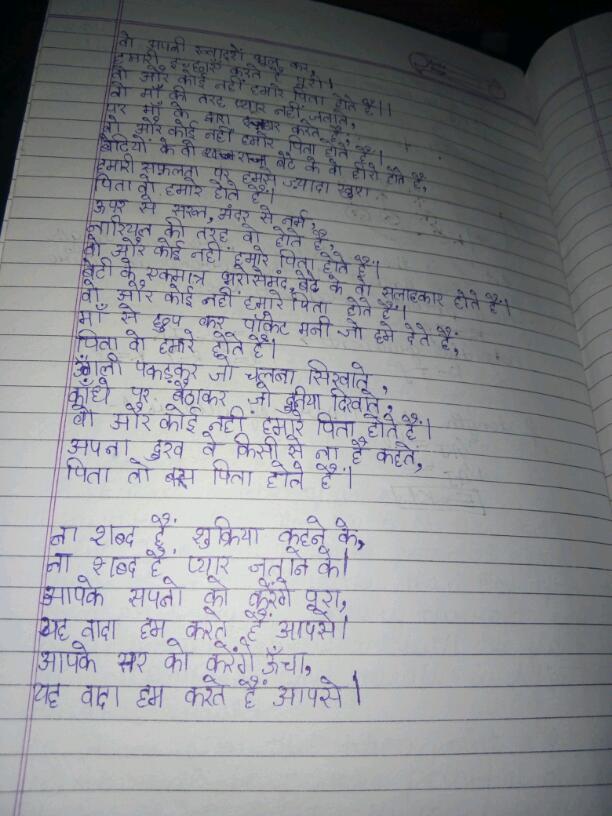 वो अपनी ख्वाहिशें भूल कर,
हमारी इच्छाएं करते हैं पूरी।
वो और कोई नहीं हमारे पिता होते हैं।।
वो माँ की तरह प्यार नहीं जताते,
पर माँ के द्वारा करते हैं,
वो और कोई नहीं हमारे पिता होते हैं।
बेटियों के वो राजा बेटे के वो हीरो होते हैं,
हमारी सफलता पर हमसे ज्यादा खुश
पिता वो हमारे होते हैं।
ऊपर से सख्त, अंदर से नर्म,
नारियल की तरह वो होते है,
वो और कोई नही हमारे पिता होते हैं।
बेटी के एकमात्र भरोसेमंद, बेटे के वो सलाहकार होते हैं।
वो और कोई नही हमारे पिता होते हैं।
माँ से छुप कर पॉकेट मनी जो हमे देते हैं,
पिता वो हमारे होते हैं।
उँगली पकड़कर जो चलना सिखाते,
काँधे पर बैठाकर जो दुनीया दिखाते,
वो और कोई नही हमारे पिता होते हैं।
अपना दुख वे किसी से ना है कहते,
पिता तो बस पिता होते हैं।
ना शब्द हैं शुक्रिया कहने के,
ना शब्द है प्यार जताने के।
आपके सपनो को करेंगे पूरा,
यह वादा हम करते हैं आपसे।
आपके सर को करेंगे ऊँचा,
यह वादा हम करते हैं आपसे।